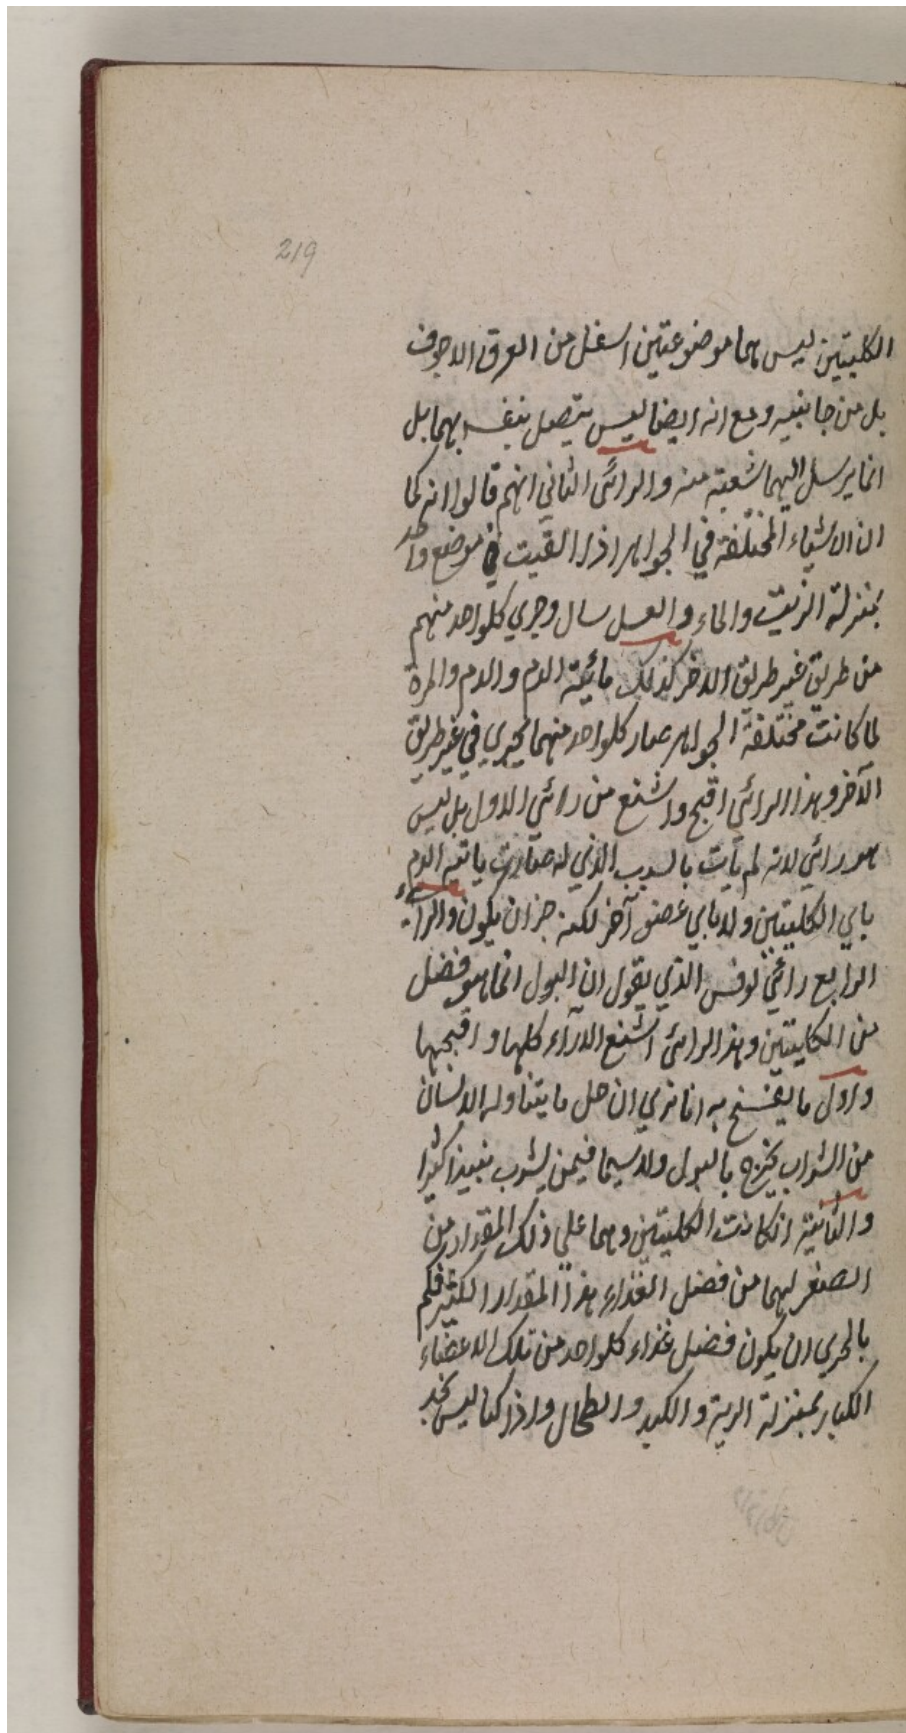 219
الكليتين ليس هما موضوعتين اسفل من العرق الاجوف
بل من جانبيه ومع انه ايضا ليس يتصل بنفسه بهما بل
انما يرسل اليهما شعبة منه والرائ الثاني انهم قالوا انه كما
ان الاشياء المختلفة في الجواهر اذا القيت في موضع واحد
بمنزلة الزيت والماء والعسل سال وجري كلواحد منهم
من طريق غير طريق الاخر كذلك مائية الدم والدم والمرة
لما كانت مختلفة الجواهر صار كلواحد منهما يجري في غير طريق
الآخر وهذا الرائ اقبح واشنع من رائي الاول بل ليس
هو رائي لانه لم يأت بالسبب الذي له صارت ياتيه الدم
ياتي الكليتين ولا ياتي عضو آخر لكنه جزان يكون والراء
الرابع رائي لوقس الذي يقول ان البول انما هو فضل
من الكليتين وهذا الرائ اشنع الاراء كلها واقبحها
واول ما يفسخ به انا نري ان جل ما يتناوله الانسان
من الشراب يخرج بالبول ولا سيما فيمن يشرب نبيذا كثيرا
والثانية ان كانت الكليتين وهما علي ذلك المقدار من
الصغر لهما من فضل الغذاء هذا المقدار الكثير فكم
بالحري ان يكون فضل غذاء كلواحد من تلك الاعضاء
الكبار بمنزلة الرية والكبد والطحال واذا كنا ليس نجد